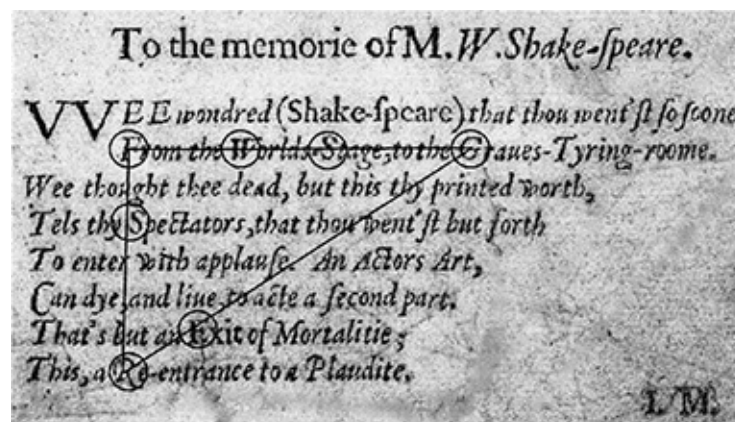 To the memorie of M. W. Shake-ſpeare.
VVEE wondred (Shake-ſpeare) that thou went'ſt ſo ſoone
From the Worlds-Stage, to the Graues-Tyring-roome.
Wee thought thee dead, but this thy printed worth,
Tels thy Spectators, that thou went'ſt but forth
To enter with applauſe. An Actors Art,
Can dye, and liue, to acte a ſecond part.
That's but an Exit of Mortalitie;
This, a Re-entrance to a Plaudite.
I. M.